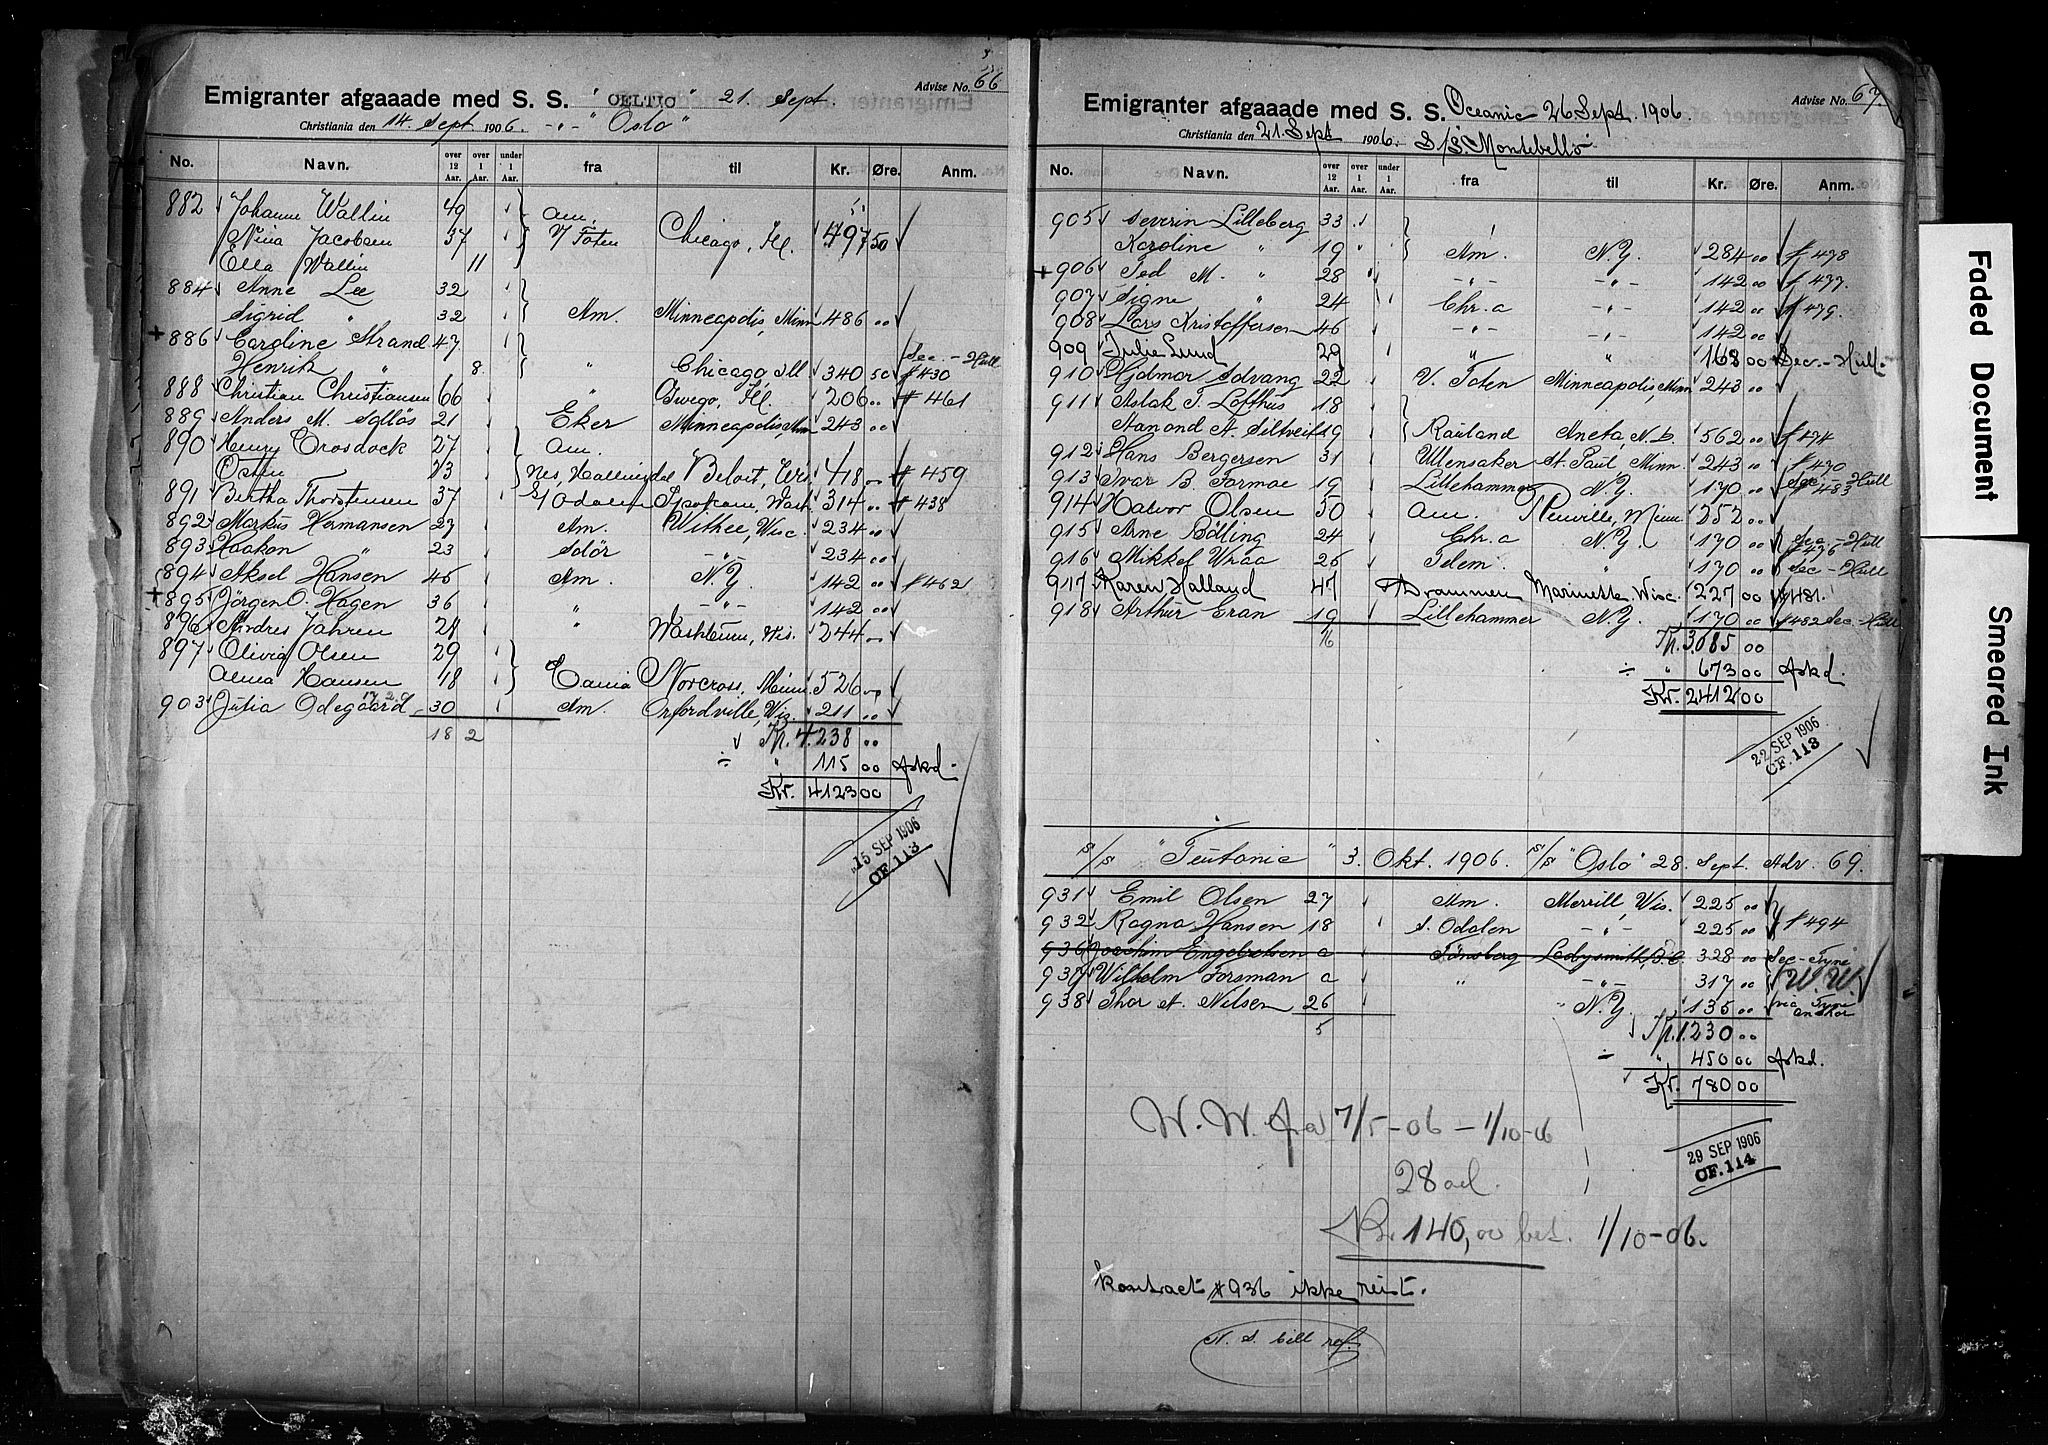 Advise No. 66
Emigranter afgaaade med S. S. "CELTIC" 21. Sept.
Christiania den 14. Sept. 1906. -"- "Oslo"
No. Navn. over 12 Aar. over 1 Aar. under 1 Aar. fra til Kr. Øre. Anm.
882 Johanne Wallin 49 Am.
Nina Jacobsen 37 V Toten Chicago, Ill. 497 50
Ella Wallin 11
884 Anne Lee 32
Sigrid " 32 Am. Minneapolis, Minn 486 00
+ 886 Caroline Strand 47 Sec. - Hull
Henrik " 8 " Chicago Ill 340 50 # 430
888 Christian Christiansen 66 " Oswego, Ill. 206 00 # 461
889 Anders M. 21 Eker Minneapolis, Minn 243 00
890 Henry Crosdock 27 Am.
73 Nes, Hallingdal Beloit, Wis. 418 00 # 459
891 Bertha Thorstensen 37 Odalen Spokane, Wash. 314 00 # 438
892 Markus Hermansen 27 Am. Withee, Wisc. 234 00
893 Haakon " 23 Solör -"- 234 00
894 Aksel Hansen 45 Am. N.Y. 142 00 # 462
+ 895 Jörgen O. Hagen 36 " -"- 142 00
896 Andres Jahren 21 " Wis. 244 00
897 Olivia Olsen 29
Alma Hansen 18 Norcross, Minn. 526 00
903 Julia Odegaard 30 Am. Orfordville, Wis. 211 00
18 2 Tp. 4.238 00
÷ " 115 00 Askd.
Kr. 4123 00
15 SEP 1906
CF. 113
Advise No. 67.
Emigranter afgaaade med S. S. Oceanic 26 Sept. 1906.
Christiania den 21. Sept 1906. S/S. Montebello
No. Navn. over 12 Aar. over 1 Aar. under 1 Aar. fra til Kr. Øre. Anm.
905 Severin Lilleberg 33
Karoline " 19 Am. N.Y. 284 00 # 478
+ 906 Ted M. " 28 -"- -"- 142 00 # 477.
907 Signe " 24 Chr.a -"- 142 00 # 479.
908 Lars Kristoffersen 46 -"- -"- 142 00
909 Julie Lund 29 " " 168 00 Sec. - Hull.
910 22 V. Toten Minneapolis, Minn 243 00
911 Aslak T. Lofthus 18
19 Rauland Aneta, N.D. 562 00 # 474
912 Hans Bergersen 31 Ullensaker St. Paul, Minn. 243 00 # 470
913 Ivar B. Formoe 19 Lillehammer N.Y. 170 00 Sec - Hull # 483
914 Halvor Olsen 50 Am. Minn 252 00
915 Arne Bölling 24 Chr.a N.Y. 170 00 Sec - Hull # 476
916 Mikkel Wraa 25 Telem. " 170 00 Sec - Hull
917 Karen Halland 47 Drammen Marinette, Wisc. 227 00 # 481.
918 Arthur Eran 19 Lillehammer N.Y. 170 00 # 482 Sec - Hull
16 Tp. 3.085 00
÷ " 673 00 Askd.
Kr. 2412 00
22 SEP 1906
CF. 113
s/s "Teutonic" 3. Okt. 1906. s/s "Oslo" 28. Sept. Adv. 69.
931 Emil Olsen 27 Am. Merrill, Wis. 225 00
932 Ragna Hansen 18 S. Odalen -"- 225 00 # 494
936 Joachim Engebretsen a Tönsberg Ladysmith, B.C. 328 00 Sec - Tyne
937 Wilhelm Foreman a " -"- 317 00 W.W.
938 Thor A. Nilsen 26 " N.Y. 135 00 via Tyne
5 Tp. 1.230 00
÷ " 450 00 Askd.
Kr. 780 00
W. W. fra 7/5 -06 - 1/10-06
28 ad.
Kr. 140,00 bet. 1/10-06.
29 SEP 1906
CF. 114
Kontract # 936 ikke reist.
Faded Document
Smeared Ink